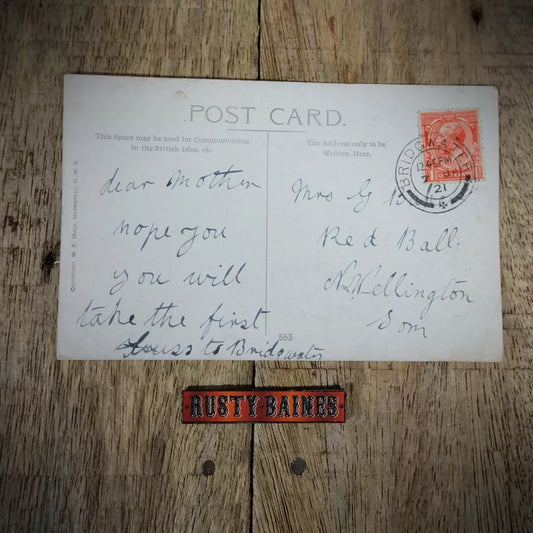 POST CARD.
This Space may be used for Communication
in the British Isles, etc
The Address only to be
Written Here.
COPYRIGHT. W. E. MACK, HAMPSTEAD, N. W. 3.
BRIDGWATER
12 45 PM
21
dear Mother
hope you
you will
take the first
to Bridgwater
Mrs G
Red Ball.
Nr Wellington
Som
553
RUSTY BAINES